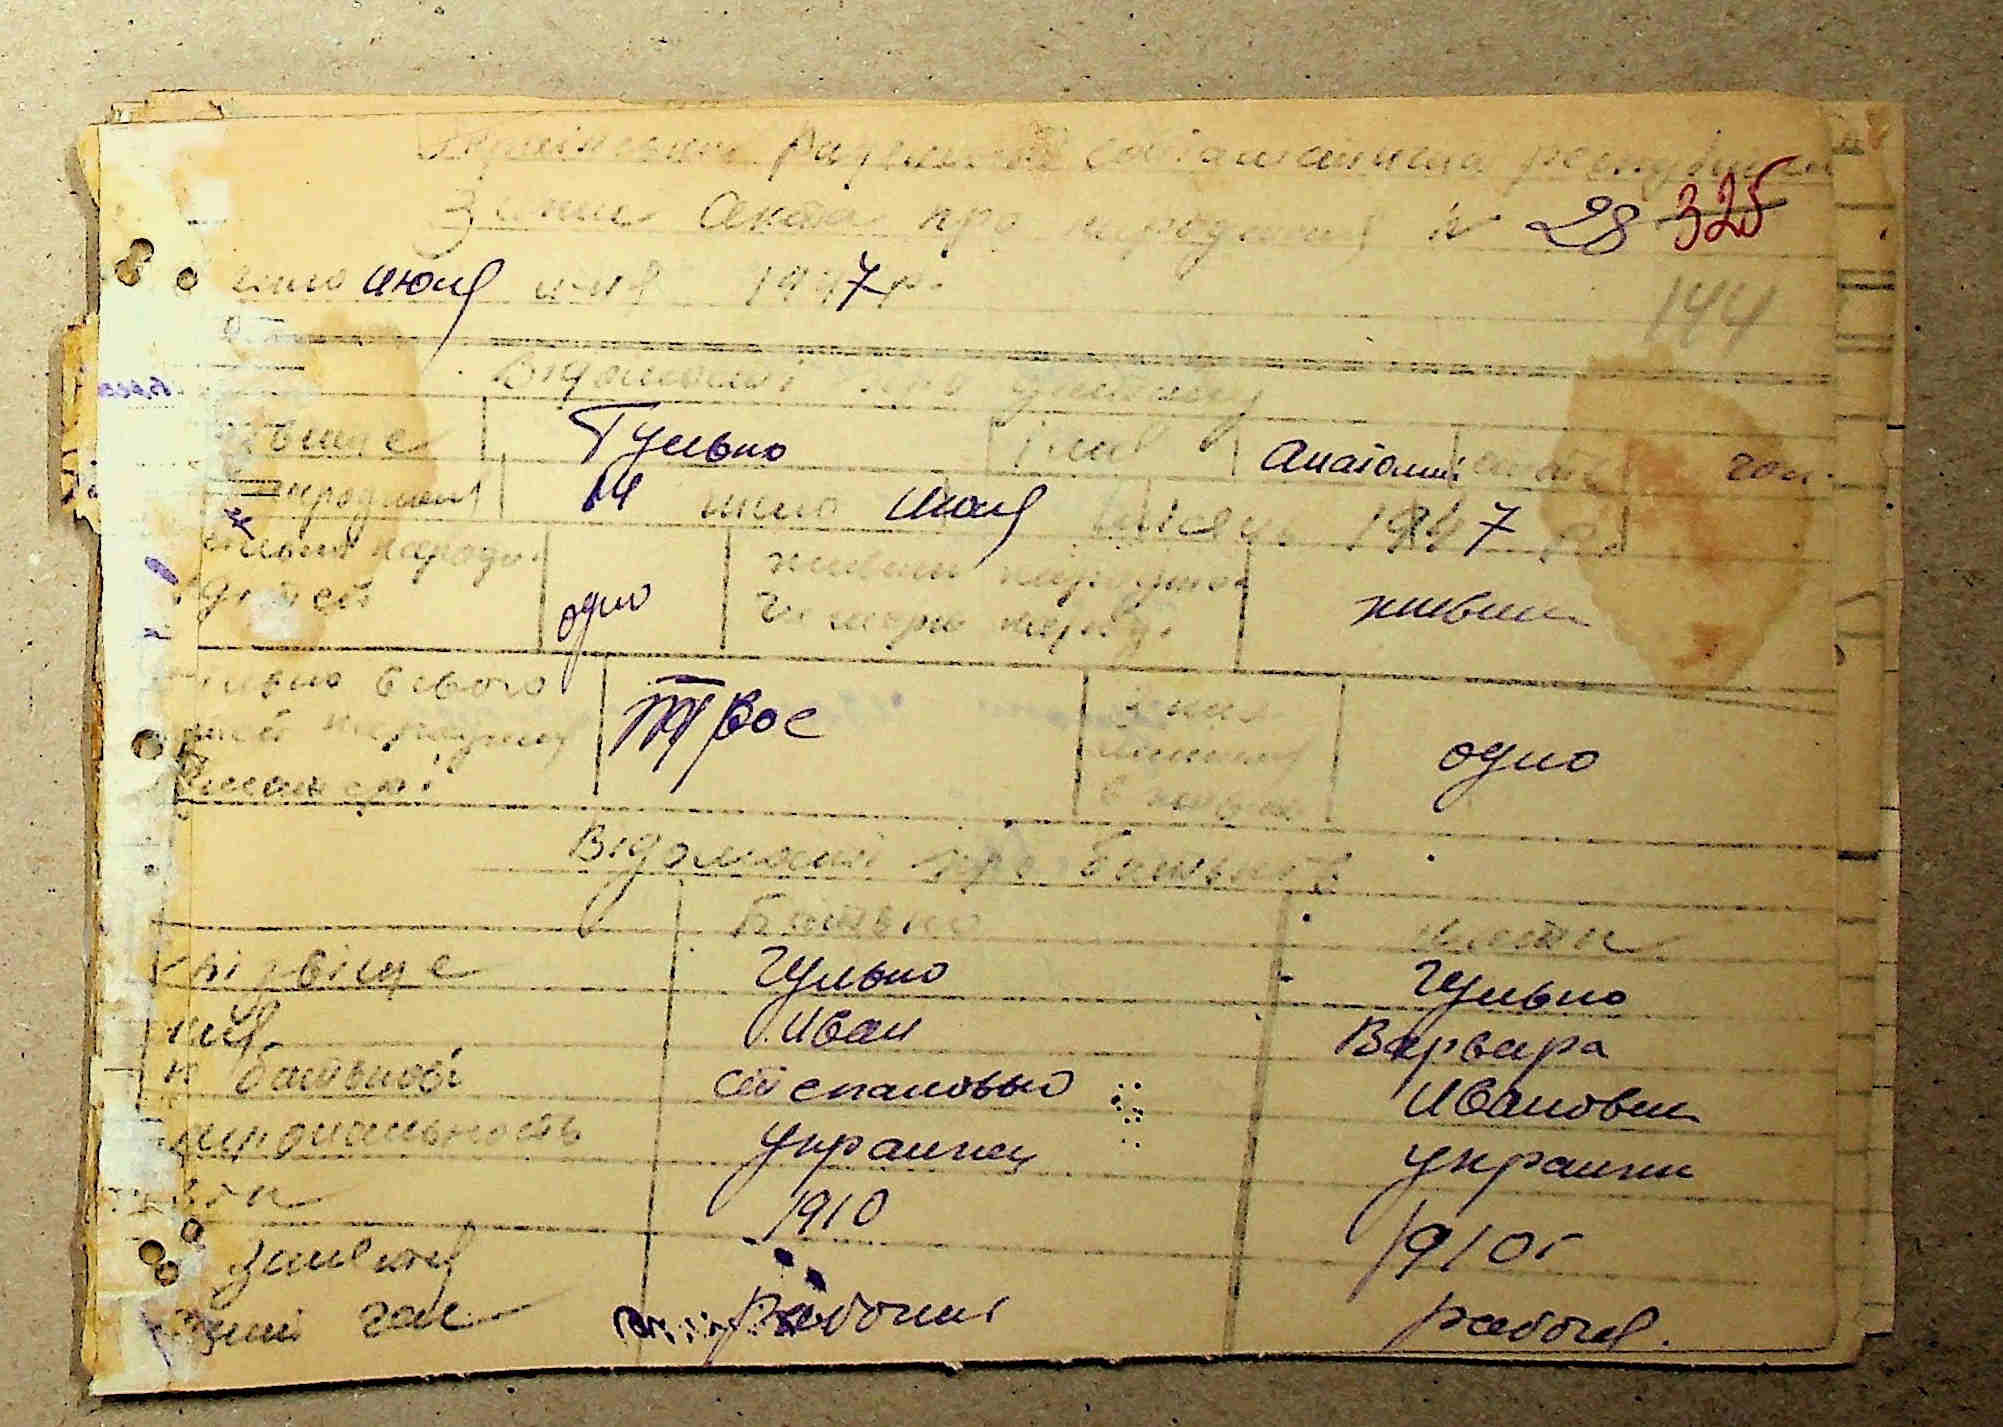 Українська Радянська соціалістична республіка
Запис Акта про народження № 28 325
число июля м-ця 1947 р.
144
Відомості про дитину
Прізвище Гулько Імя Анатолий стать чол.
народження 14 число июля місяць 1947 р.
скільки народи. дітей одно живим народжен. чи мертв. народ. живим
скільки всього дітей народжено матері трое одно
Відомості про батьків
Батько Мати
Прізвище Гулько Гулько
імя Иван Варвара
по батькові Степанович Ивановна
національность украинец украинк
вік 1910 1910 г
заняття рабочий рабочая.